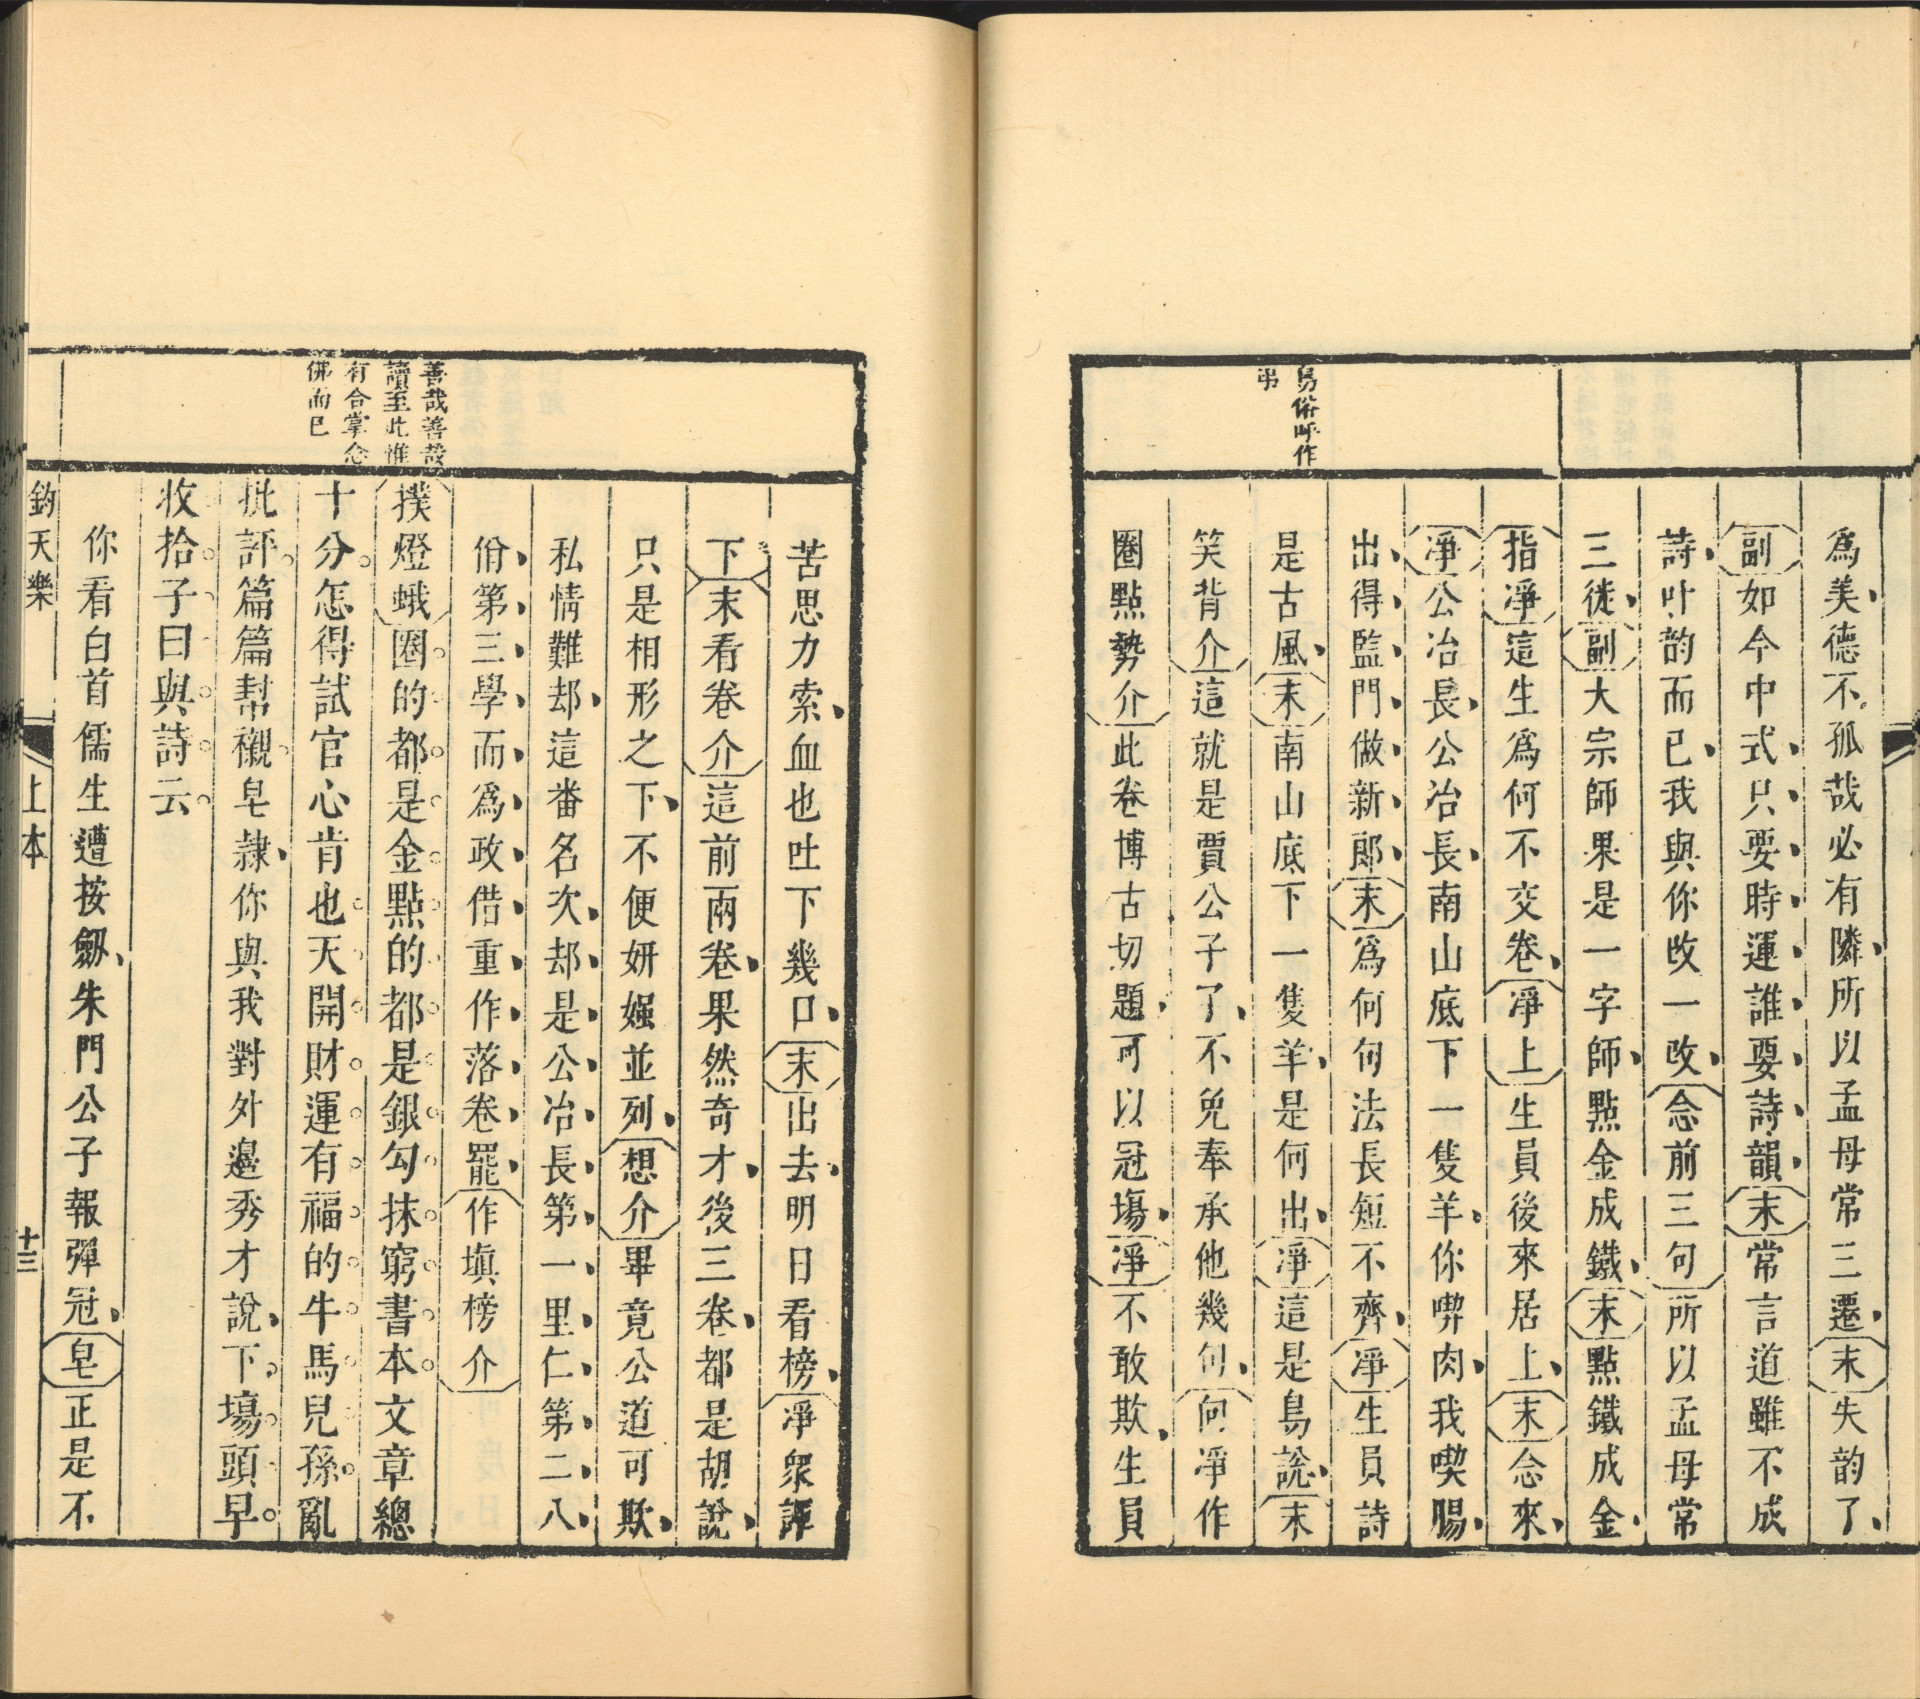 爲美德不孤哉必有隣所以孟母常三遷末失韵了
副如今中式只要時運誰要詩韻末常言道雖不成
詩叶韵而已我與你改一改念前三句所以孟母常
三徙副大宗師果是一字師點金成鐵末點鐵成金
指淨這生爲何不交卷淨上生員後來居上末念來
淨公冶長公冶長南山底下一隻羊你喫肉我喫腸
出得監門做新郎末爲何句法長短不齊淨生員詩
是古風末南山底下一隻羊是何出淨這是鳥說末
鳥俗呼作
弔
笑背介這就是賈公子了不免奉承他幾句向淨作
圈點勢介此卷博古切題可以冠塲淨不敢欺生員
苦思力索血也吐下幾口末出去明日看榜淨衆諢
下末看卷介這前兩卷果然奇才後三卷都是胡說
只是相形之下不便妍媸並列想介畢竟公道可欺
私情難却這番名次却是公冶長第一里仁第二八
佾第三學而爲政借重作落卷罷作塡榜介
善哉善哉
讀至此惟
有合掌念
佛而已
撲燈蛾圈的都是金點的都是銀勾抹窮書本文章總
十分怎得試官心肯也天開財運有福的牛馬兒孫亂
批評篇篇幇襯皂隷你與我對外邊秀才說下塲頭早
收拾子曰與詩云
你看白首儒生遭按劔朱門公子報彈冠皂正是不
鈞天樂
上本
十三